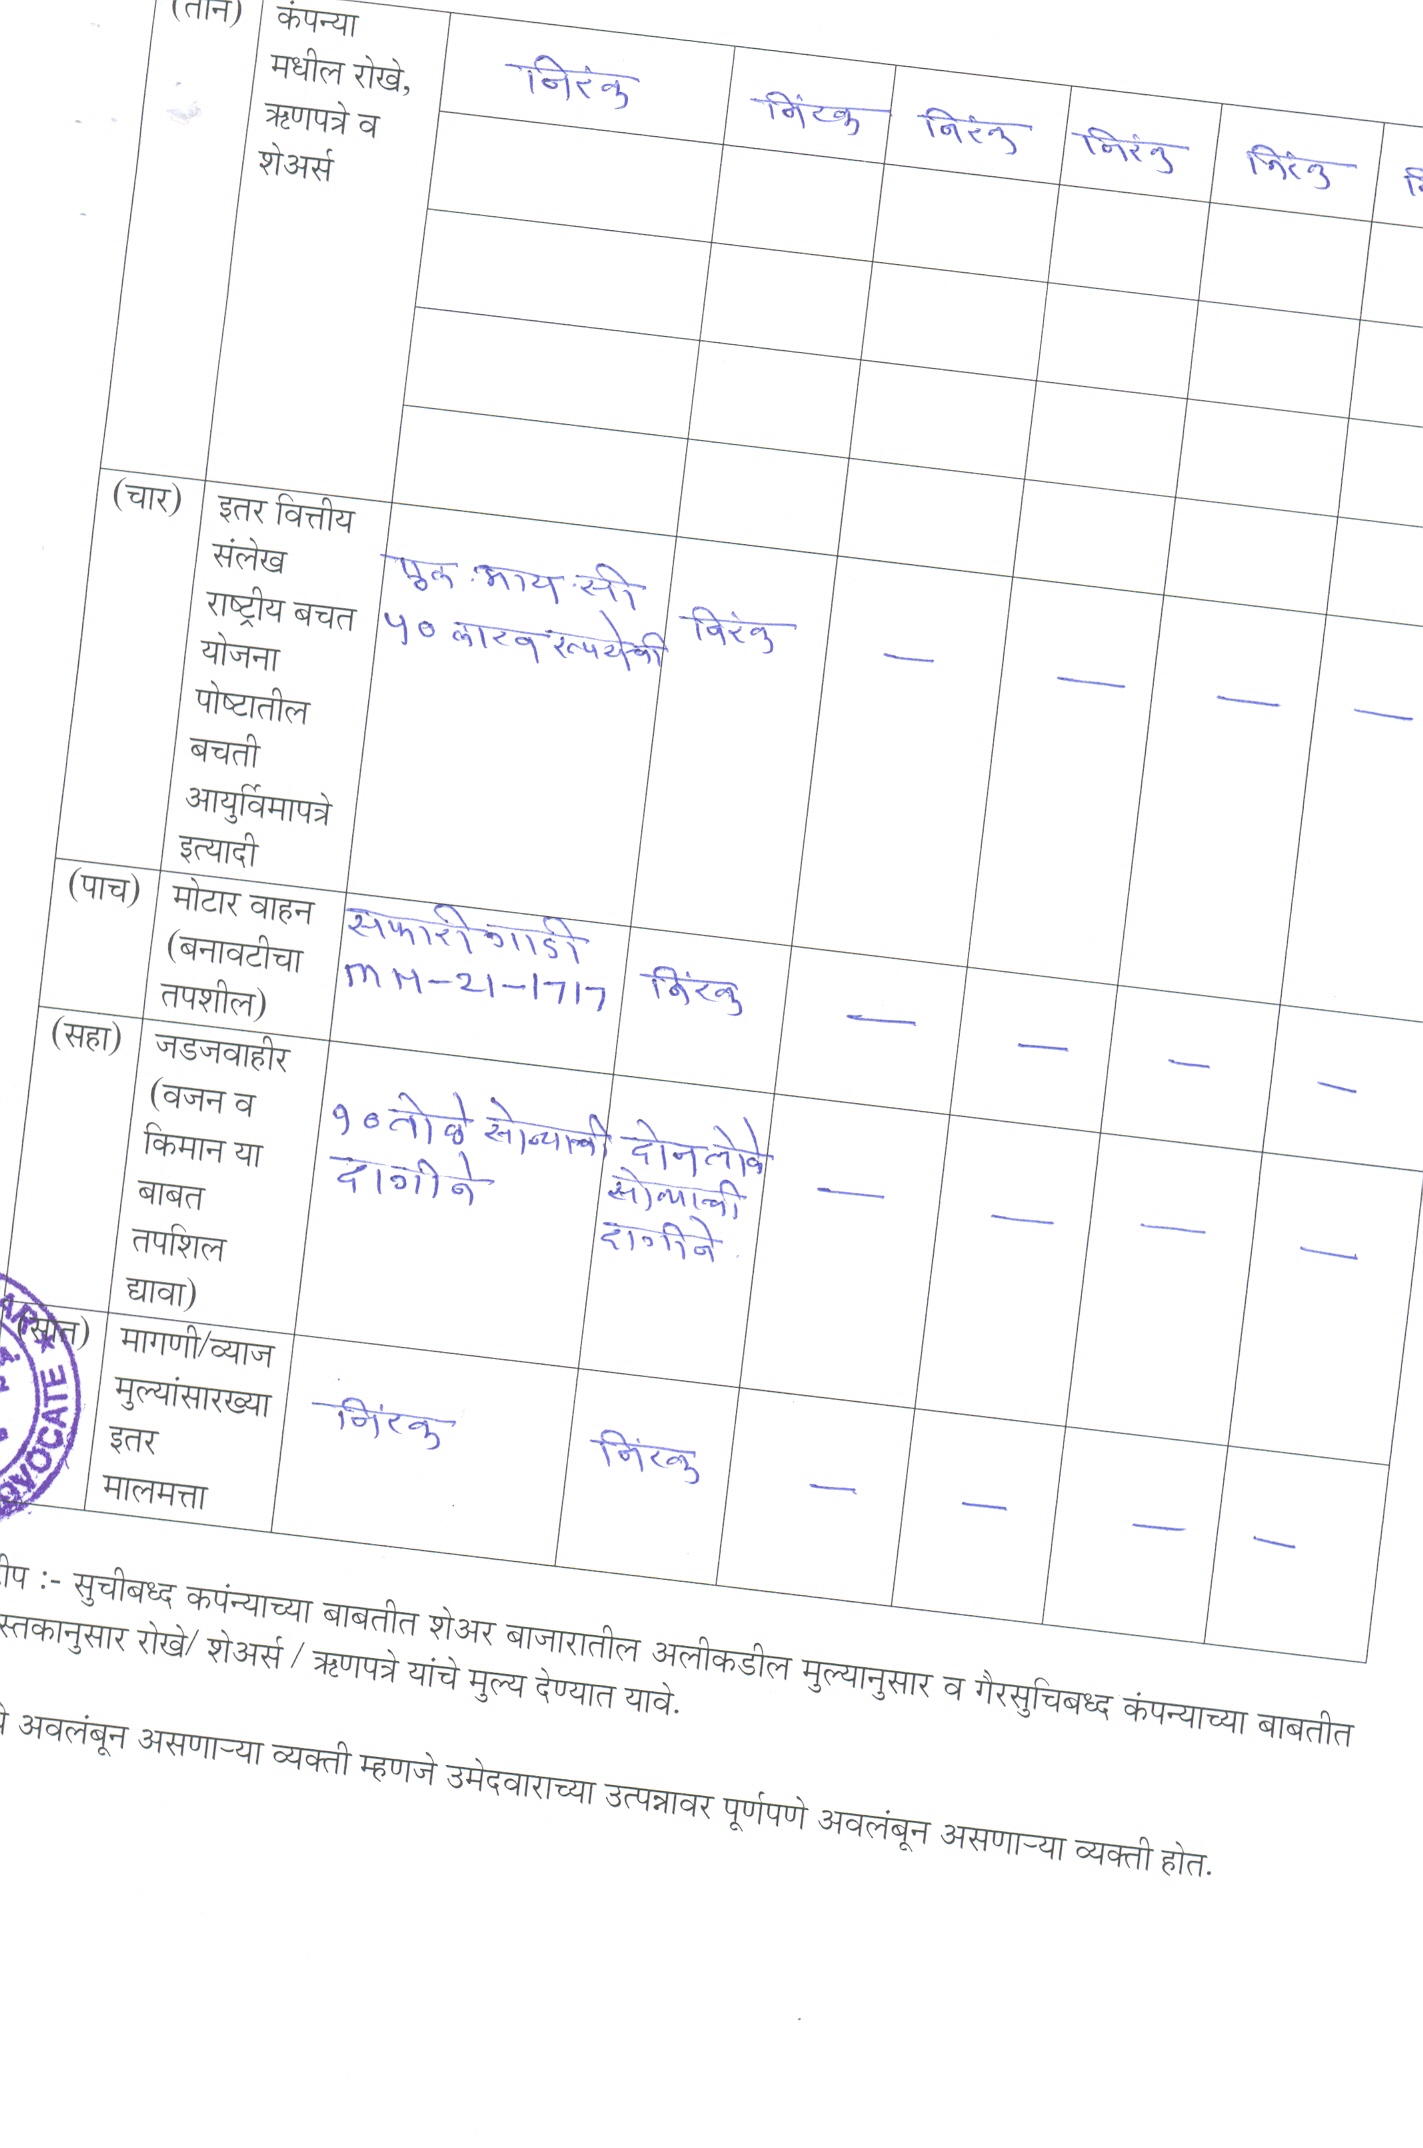 (तीन) कंपन्या
मधील रोखे,
ऋणपत्रे व
शेअर्स
निरंक निंरक निरंक निरंक निरंक
(चार) इतर वित्तीय
संलेख
राष्ट्रीय बचत
योजना
पोष्टातील
बचती
आयुर्विमापत्रे
इत्यादी
एल.आय.सी
५० लाख रूपयेची
निरंक — — — —
(पाच) मोटार वाहन
(बनावटीचा
तपशील)
सफारी गाडी
MH-21-1717
निंरक — — — —
(सहा) जडजवाहीर
(वजन व
किमान या
बाबत
तपशिल
द्यावा)
१० तोळे सोन्याची
दागीने
दोन तोळे
सोन्याची
दागीने
— — — —
(सात) मागणी/व्याज
मुल्यांसारख्या
इतर
मालमत्ता
निंरक निंरक — — — —
ADVOCATE
टीप :- सुचीबध्द कपंन्याच्या बाबतीत शेअर बाजारातील अलीकडील मुल्यानुसार व गैरसुचिबध्द कंपन्याच्या बाबतीत
स्तकानुसार रोखे/ शेअर्स / ऋणपत्रे यांचे मुल्य देण्यात यावे.
अवलंबून असणाऱ्या व्यक्ती म्हणजे उमेदवाराच्या उत्पन्नावर पूर्णपणे अवलंबून असणाऱ्या व्यक्ती होत.